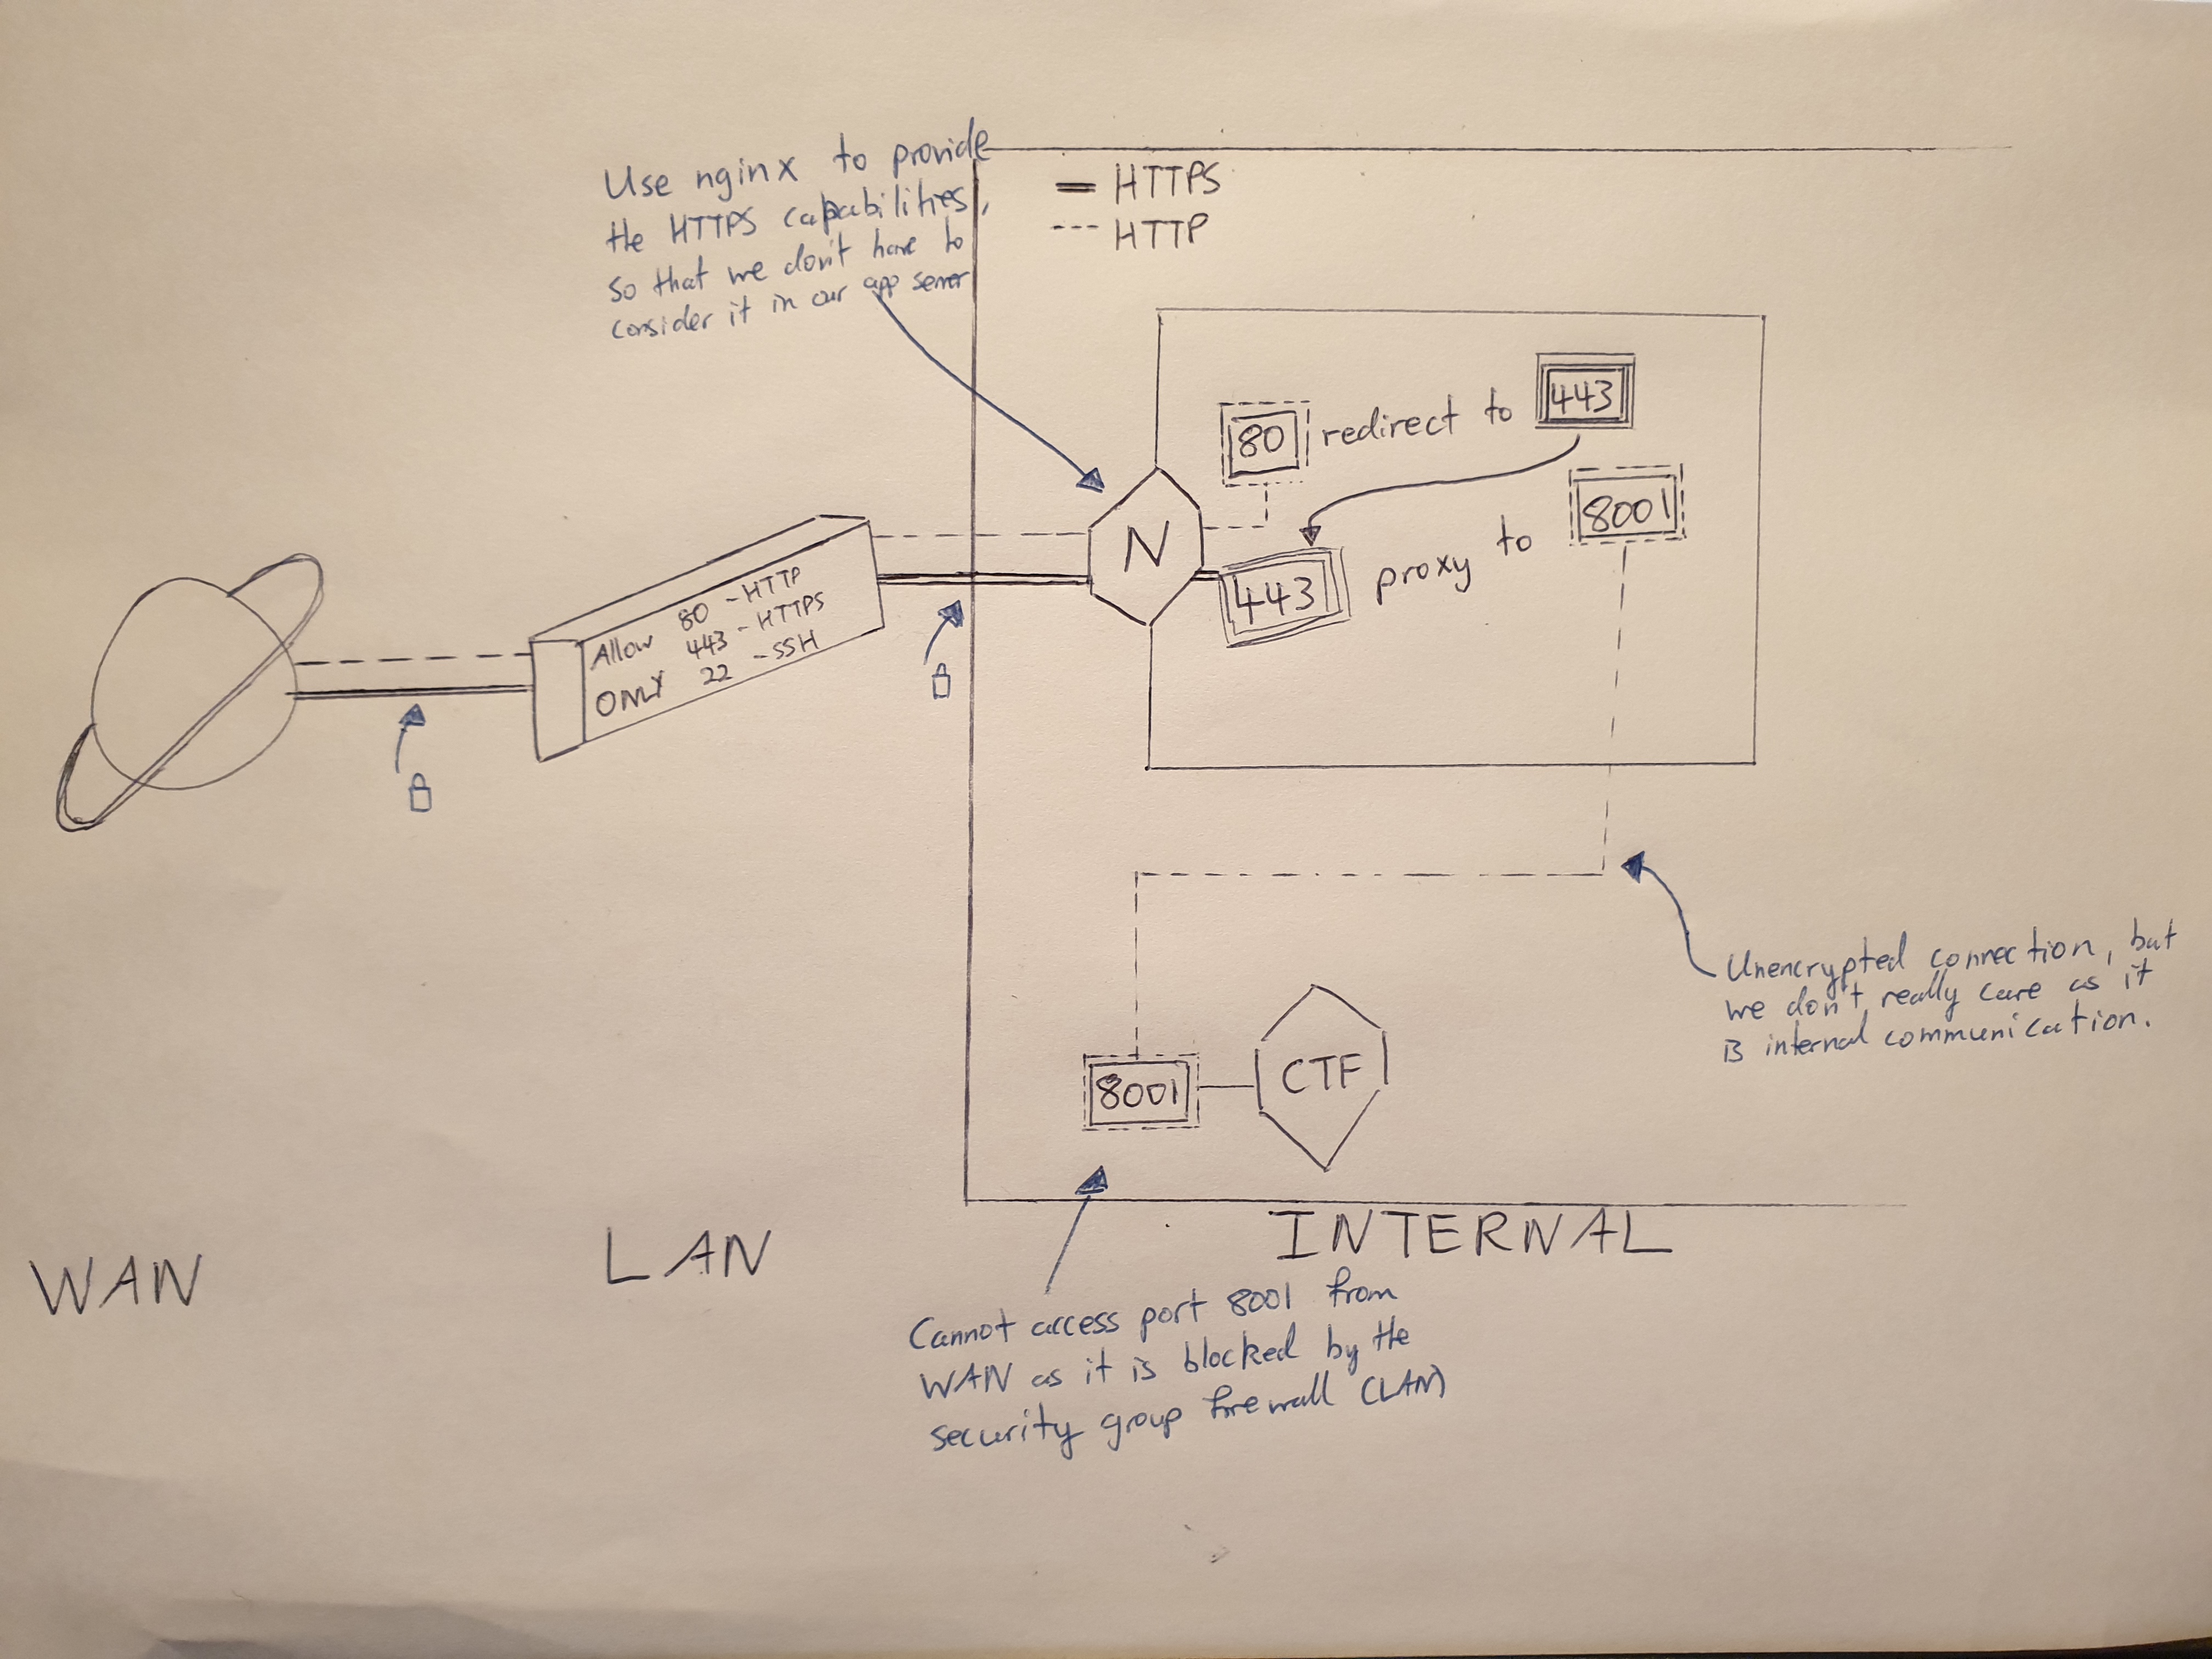 Use nginx to provide
the HTTPS capabilities,
so that we don't have to
consider it in our app server
HTTPS
HTTP
80 redirect to 443
N
443 proxy to 8001
Allow 80 - HTTP
443 - HTTPS
ONLY 22 - SSH
Unencrypted connection, but
we don't really care as it
is internal communication.
8001
CTF
WAN
LAN
INTERNAL
Cannot access port 8001 from
WAN as it is blocked by the
security group firewall (LAN)